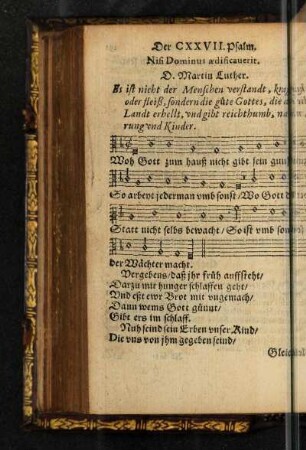 Der CXXVII. Psalm.
Nisi Dominus ædificauerit.
D. Martin Luther.
Es ist nicht der Menschen verstandt,
oder fleiß, sondern die güte Gottes, die
Landt erhelt, vnd gibt reichthumb,
rung vnd Kinder.
Woh Gott zum hauß nicht gibt sein
So arbeyt jederman vmb sonst/ Wo Gott die
Statt nicht selbs bewacht/ So ist vmb sonst
der Wächter macht.
Vergebens/ daß jhr früh auffsteht/
Darzu mit hunger schlaffen geht/
Vnd eßt ewr Brot mit vngemach/
Dann wems Gott günnt/
Gibt ers im schlaff.
Nuh seind sein Erben vnser Kind/
Die vns von jhm gegeben seind/